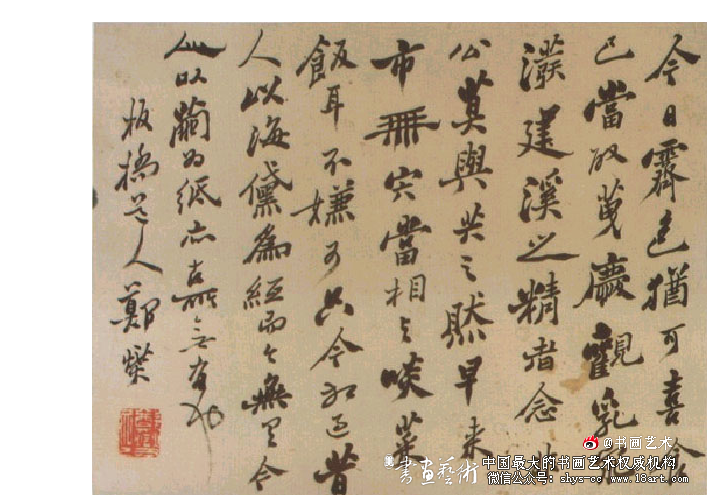 今日霽色猶可喜食
已當取慶觀乳
潑建溪之精者念
公莫與共之然早來
市無肉當相與啖菜
飯耳不嫌可只今相過昔
人以海為而今無今
人以為紙亦古無有也
板橋道人鄭燮
@书画艺术
書画藝術 中国最大的书画艺术权威机构
微信公众号：shys-cc www.18art.com